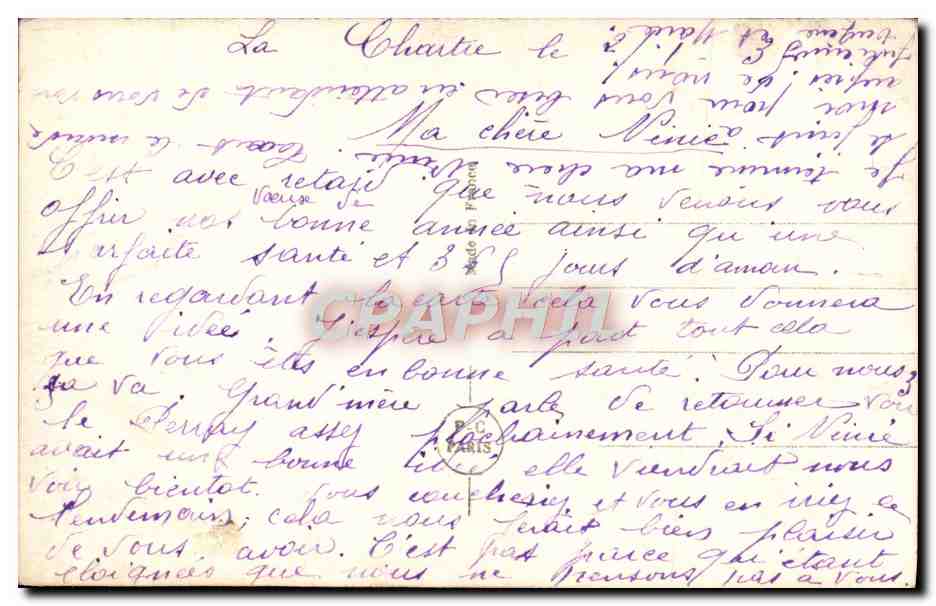 La Chartre le
Ma chère Ninie
C'est avec retard que nous venons vous
offrir nos voeux de bonne année ainsi qu'une
parfaite santé et 365 jours d'amour.
En regardant la carte cela vous donnera
une idée. J'espère à part tout cela
que vous êtes en bonne santé. Pour nous
ça va. Grand'mère parle de retourner voir
le Perray assez prochainement. Si Ninie
avait une bonne idée elle viendrait nous
voir bientot. Vous coucheriez et vous en iriez le
lendemain, cela nous ferait bien plaisir
de vous avoir. C'est pas parce qu'étant
éloignées que nous ne pensons pas à vous.
Je termine ma chère Ninie. Tout le monde
se joint à
moi pour vous biser en attendant de vous voir
Made in France
P-C
PARIS
CPAPHIL